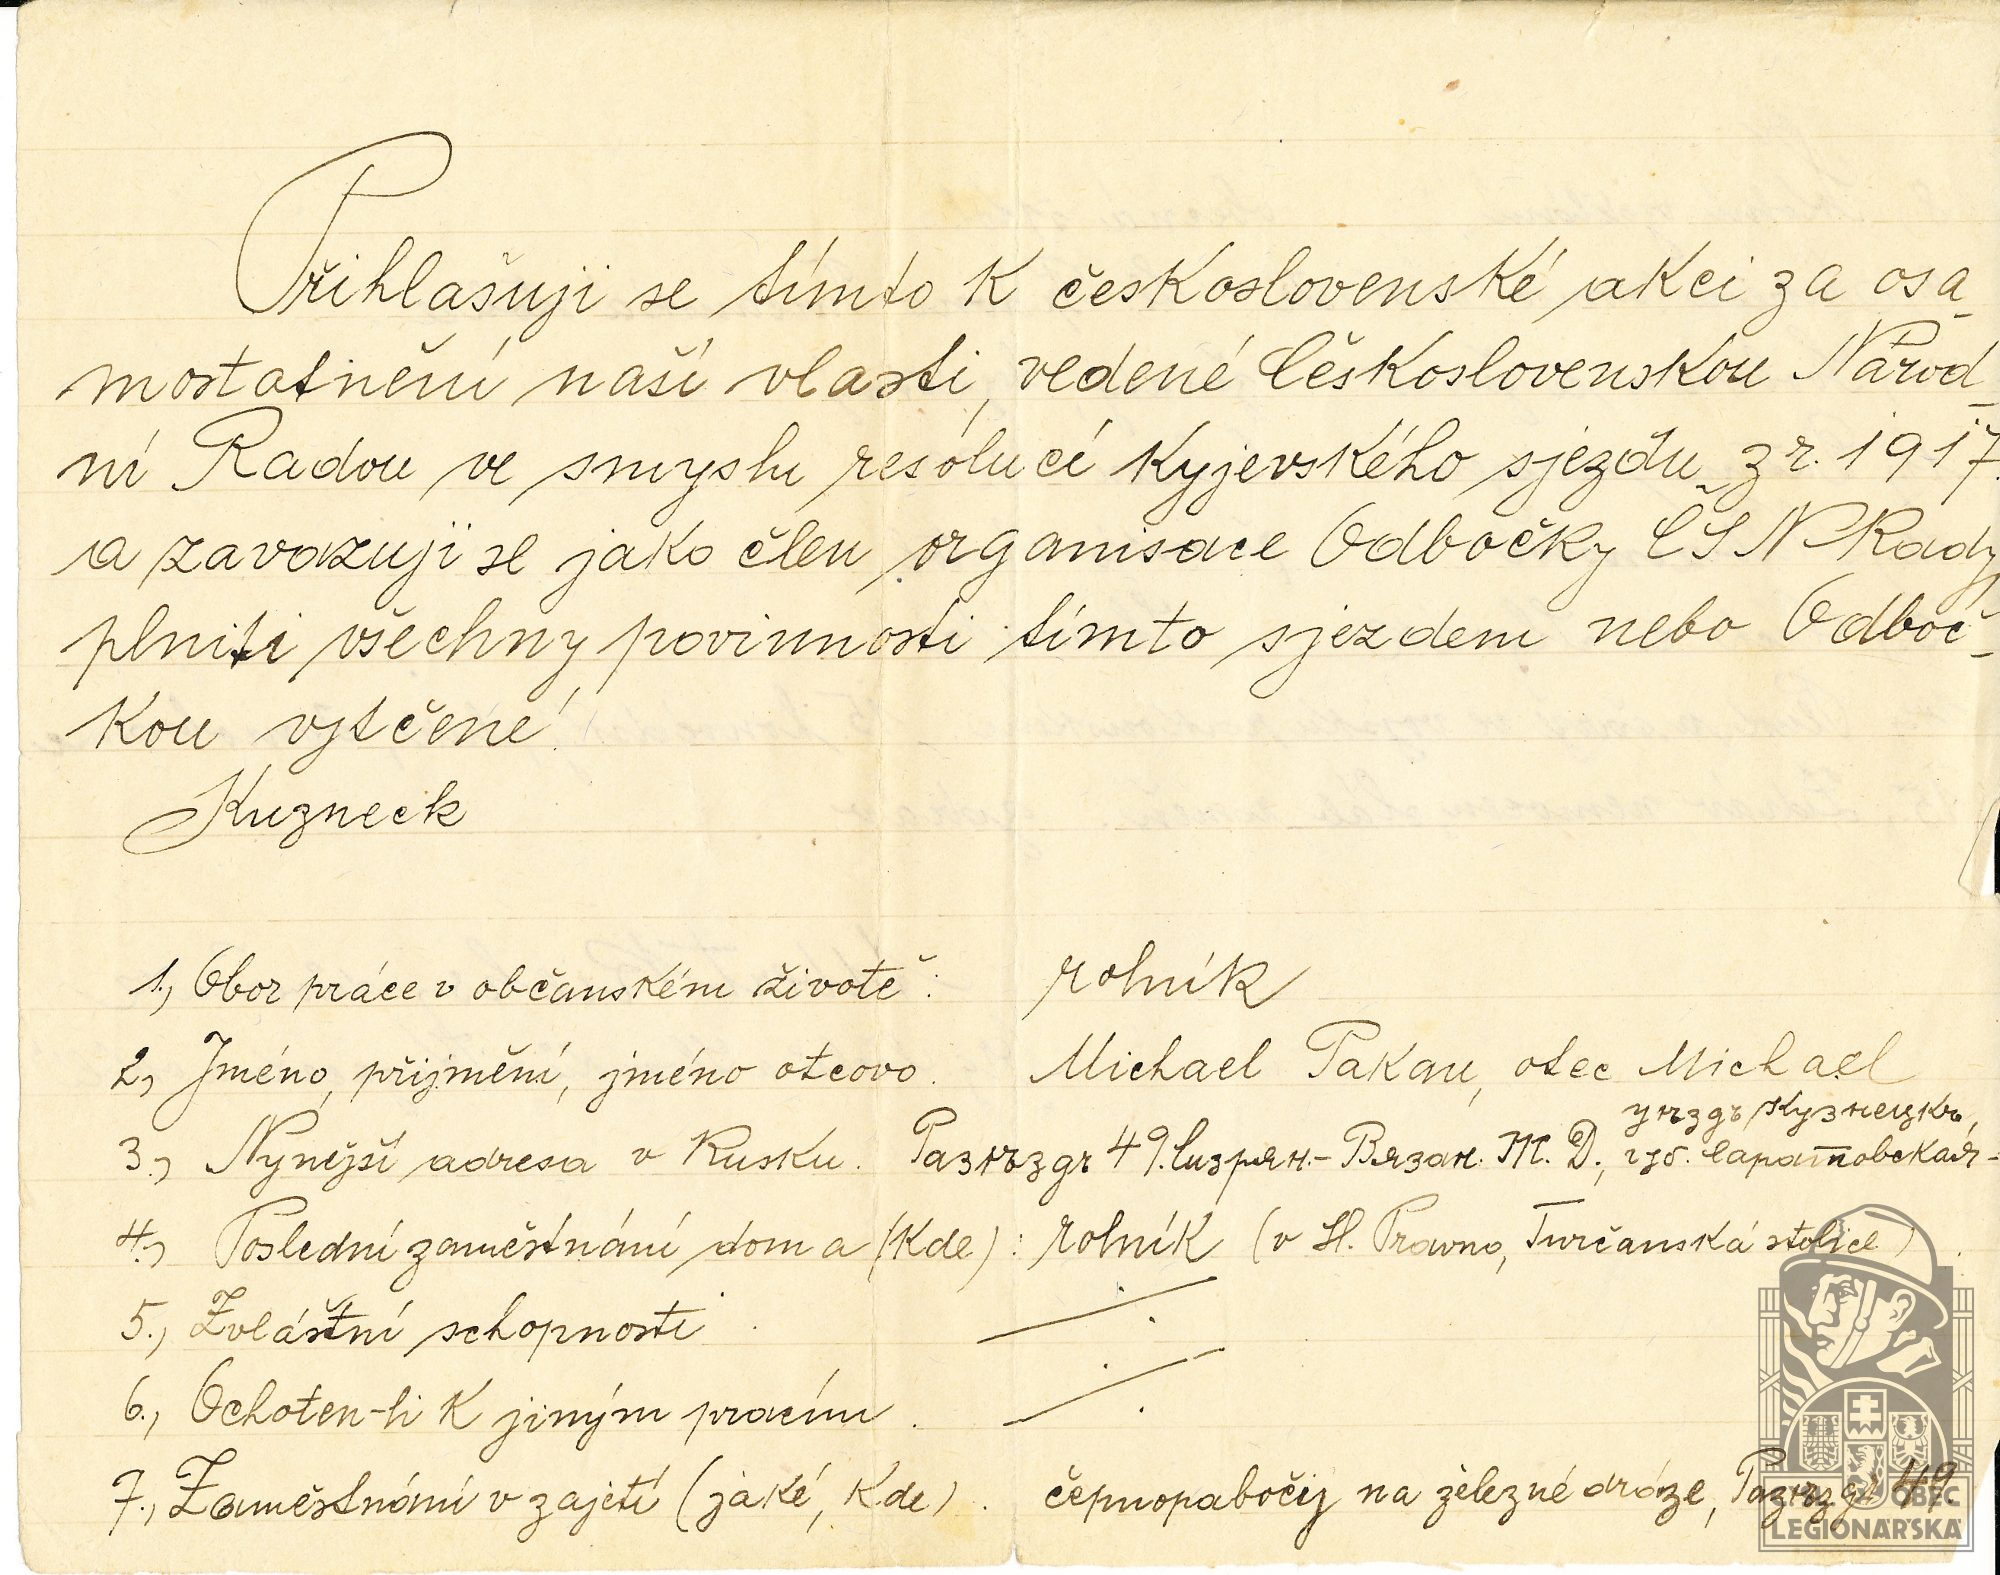 Přihlašuji se tímto k československé akci za osa-
mostatnění naší vlasti, vedené Československou Národ-
ní Radou ve smyslu resólucí Kyjevského sjezdu z r. 1917.
a zavazuji se jako člen organisace Odbočky ČSN Rady
plniti všechny povinnosti tímto sjezdem nebo Odboč-
kou vytčené!
Kuzneck
1., Obor práce v občanském životě: rolník
2., Jméno, příjmění, jméno otcovo. Michael Pakan, otec Michael
уѣздъ Кузнецкъ,
3., Nynější adresa v Rusku. Разъѣздъ 49. Сызрян.-Вязан. Ж. Д., губ. Саратовская-
4., Poslední zaměstnání doma (kde): rolník (v H. Pravno, Turčanská stolice)
5., Zvláštní schopnosti.
6., Ochoten-li k jiným pracím.
7., Zaměstnání v zajetí (jaké, kde). čepnopabočij na železné dróze, Разъѣздъ 49.
OBEC
LEGIONÁŘSKÁ